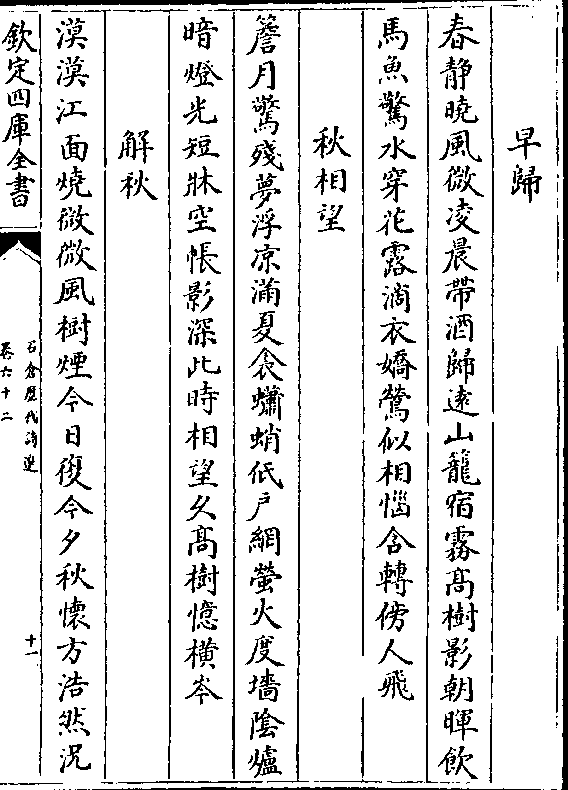 早歸
春靜曉風微凌晨帶酒歸遠山籠宿霧高樹影朝暉飲
馬魚驚水穿花露滴衣嬌鶯似相惱含轉傍人飛
秋相望
簷月驚殘夢浮涼滿夏衾蠨蛸低戶網螢火度墻陰爐
暗燈光短牀空帳影深此時相望久高樹憶橫岑
解秋
漠漠江面燒微微風樹煙今日復今夕秋懷方浩然況
欽定四庫全書
石倉歷代詩選
卷六十二
十一